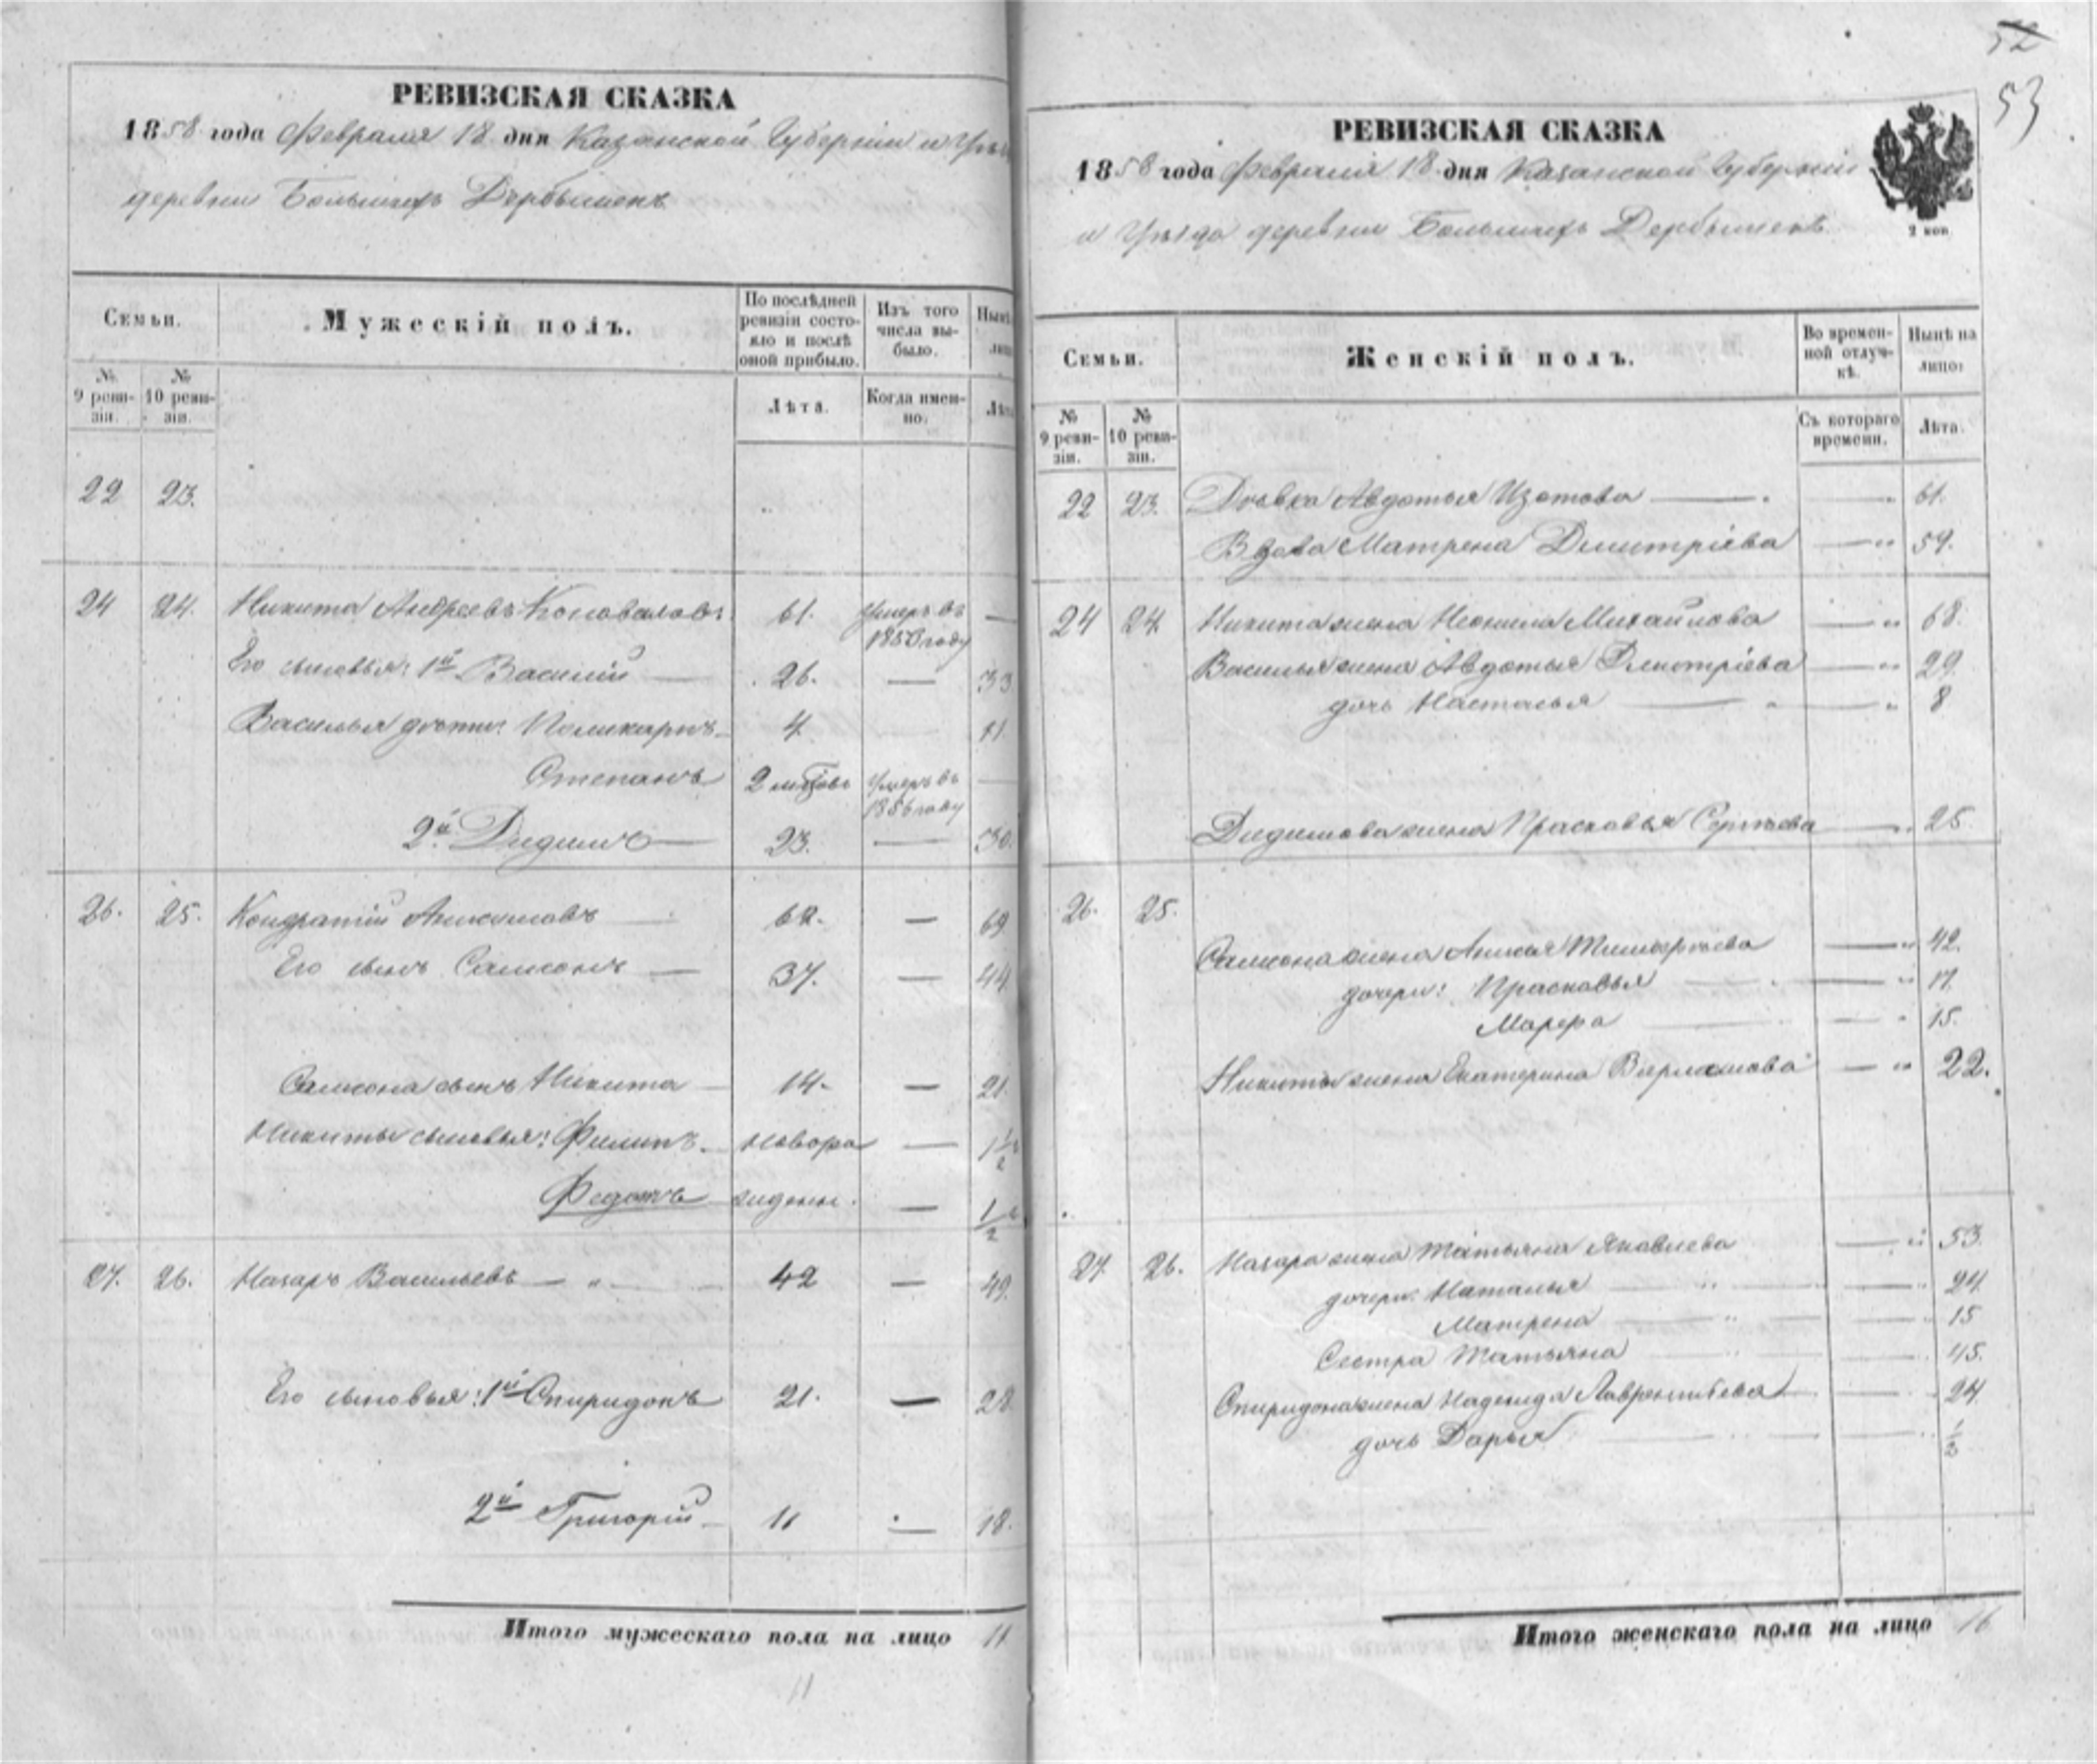 52
53
РЕВИЗСКАЯ СКАЗКА
1858 года Февраля 18 дня Казанской Губернии и Уѣз
деревни Большихъ Дербышекъ
Семьи.
Мужескій полъ.
По послѣдней ревизіи состояло и послѣ оной прибыло.
Изъ того числа выбыло.
Нынѣ
лицо
№ 9 ревизіи.
№ 10 ревизіи.
Лѣта.
Когда именно.
Лѣта
22 23.
24 24. Никита Андреевъ Коноваловъ 61. Умеръ въ —
1850 году
Его сыновья: 1й Василій — 26. — 33
Василья дѣти: Поликарпъ 4 11.
Степанъ 2 мѣсяцовъ Умеръ въ —
1856 году
2й Дидимъ — 23. — 30.
26. 25. Кондратій Анисимовъ — 62. — 69
Его сынъ Самсонъ — 37. — 44.
Самсона сынъ Никита — 14. — 21.
Никиты сыновья: Филипъ. новоро — 1 1/2
Федотъ жденн. — 1/2
27. 26. Назаръ Васильевъ — " — 42 — 49.
Его сыновья: 1й Спиридонъ 21. — 28.
2й Григорій 11 — 18.
Итого мужескаго пола на лицо 11
11
РЕВИЗСКАЯ СКАЗКА
1858 года Февраля 18 дня Казанской Губерніи
и Уѣзда деревни Большихъ Дербышекъ
2 коп
Семьи.
Женскій полъ.
Во временной отлучкѣ.
Нынѣ на лицо:
№ 9 ревизіи.
№ 10 ревизіи.
Съ котораго времени.
Лѣта.
22 23. Дѣвка Авдотья Изотова — — " 61.
Вдова Матрена Дмитріева — " 59.
24 24. Никита жена Неонила Михайлова — " 68.
Василья жена Авдотья Дмитріева — " 29.
дочь Настасья — " — " 8
Дидимова жена Прасковья Сергѣева — " 25
26. 25.
Самсона жена Анисья Тимофѣева — " 42.
дочери: Прасковья — " 17.
Марфа — " 15.
Никиты жена Екатерина Варламова — " 22.
27. 26. Назара жена Татьяна Яковлева — " 53.
дочери: Наталья — " — " 24.
Матрена — " — " 15
Сестра Татьяна — " — " 45.
Спиридона жена Надежда Лаврентьева — " 24.
дочь Дарья — " — " 1/2
Итого женскаго пола на лицо 16